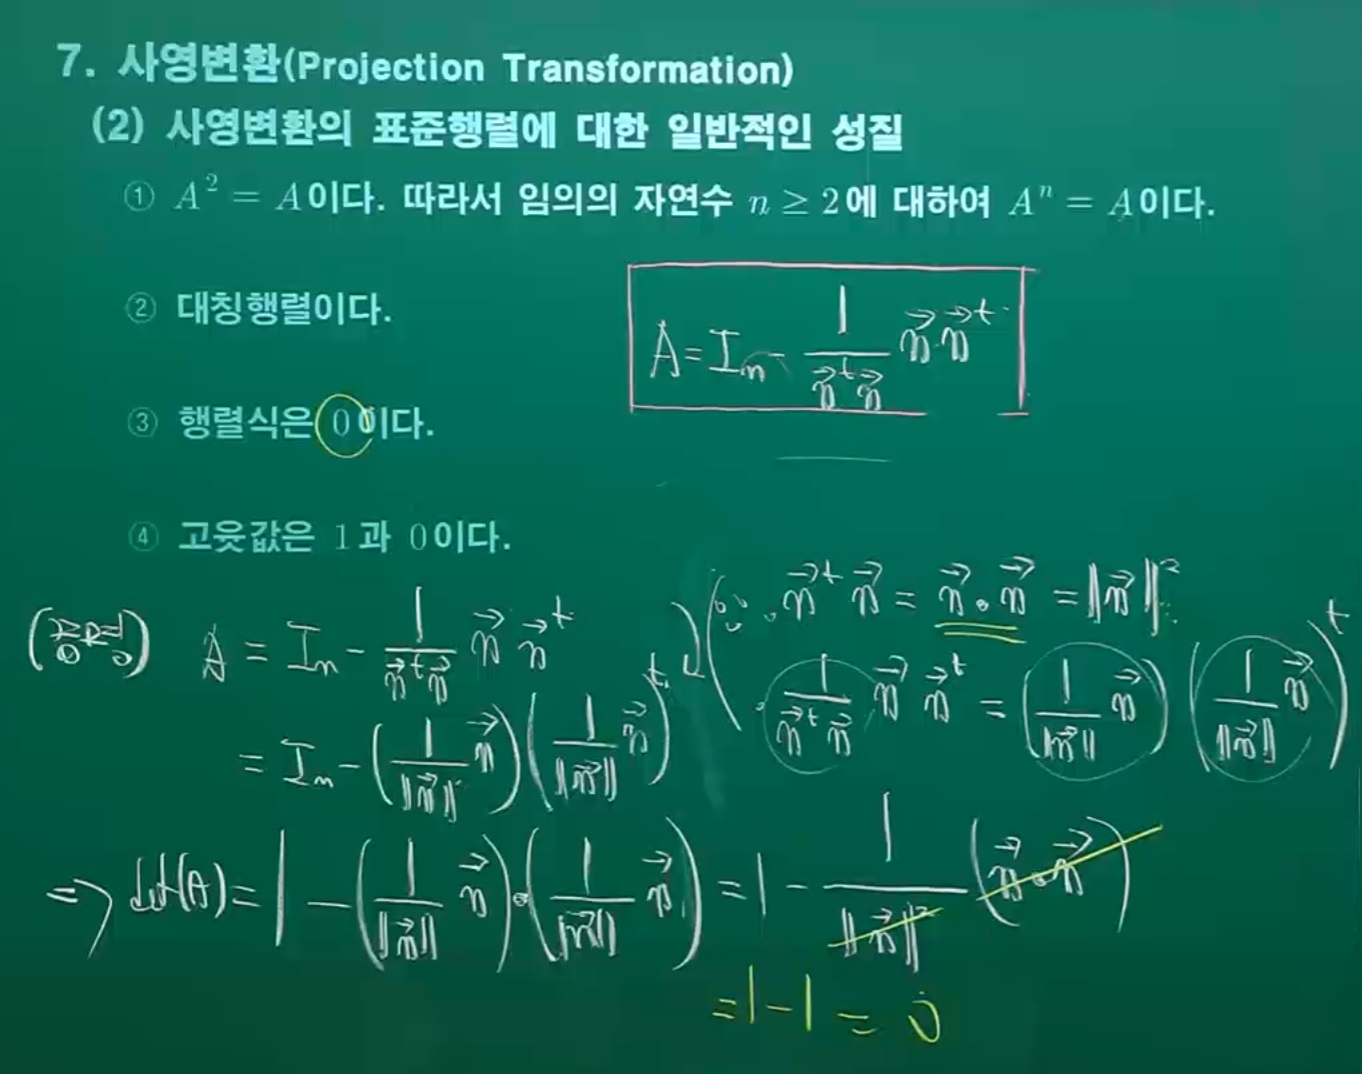 7. 사영변환(Projection Transformation)
(2) 사영변환의 표준행렬에 대한 일반적인 성질
① A² = A이다. 따라서 임의의 자연수 n ≥ 2에 대하여 Aⁿ = A이다.
② 대칭행렬이다.
A = Iₙ - 1/(n⃗ᵗn⃗) n⃗·n⃗ᵗ
③ 행렬식은 0이다.
④ 고윳값은 1과 0이다.
(증명) A = Iₙ - 1/(n⃗ᵗn⃗) n⃗ n⃗ᵗ
= Iₙ - (1/‖n⃗‖ n⃗)(1/‖n⃗‖ n⃗)ᵗ
(∵ · n⃗ᵗn⃗ = n⃗·n⃗ = ‖n⃗‖²
· 1/(n⃗ᵗn⃗) n⃗ n⃗ᵗ = (1/‖n⃗‖ n⃗)(1/‖n⃗‖ n⃗)ᵗ
⇒ det(A) = 1 - (1/‖n⃗‖ n⃗)·(1/‖n⃗‖ n⃗) = 1 - 1/‖n⃗‖² (n⃗·n⃗)
= 1 - 1 = 0